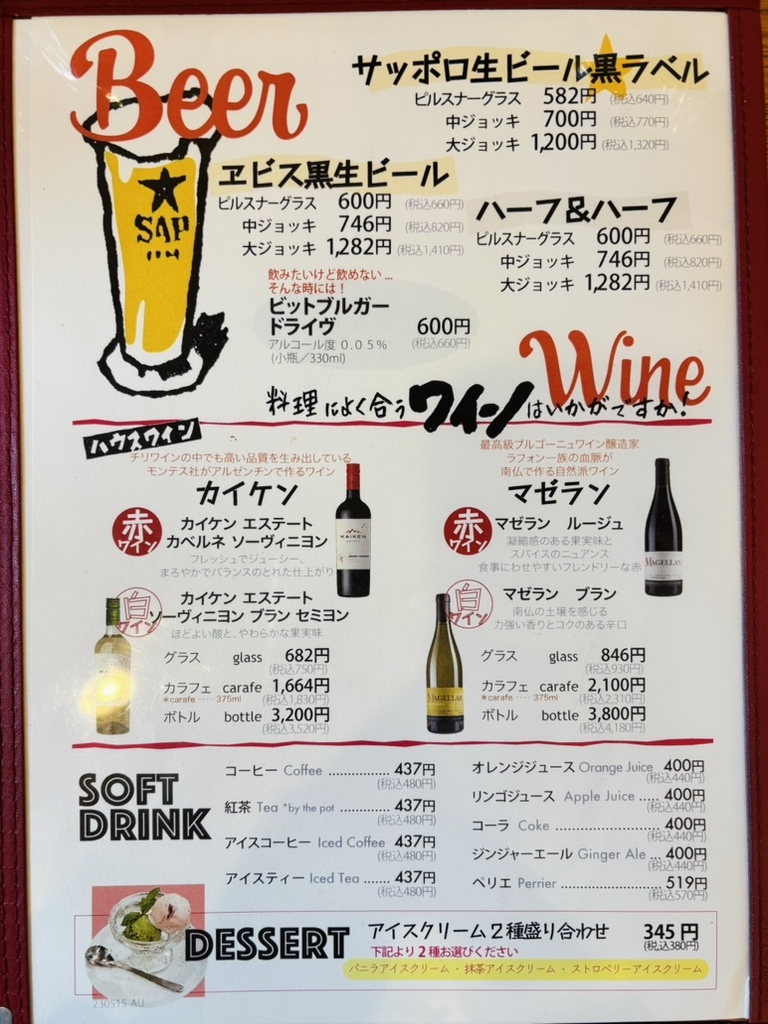 Beer
サッポロ生ビール黒ラベル
ピルスナーグラス 582円 (税込640円)
中ジョッキ 700円 (税込770円)
大ジョッキ 1,200円 (税込1,320円)
SAP
ヱビス黒生ビール
ピルスナーグラス 600円 (税込660円)
中ジョッキ 746円 (税込820円)
大ジョッキ 1,282円 (税込1,410円)
ハーフ&ハーフ
ピルスナーグラス 600円 (税込660円)
中ジョッキ 746円 (税込820円)
大ジョッキ 1,282円 (税込1,410円)
飲みたいけど飲めない...
そんな時には!
ビットブルガー
ドライヴ 600円
(税込660円)
アルコール度 0.05%
(小瓶/330ml)
Wine
料理によく合うワインはいかがですか!
ハウスワイン
チリワインの中でも高い品質を生み出している
モンテス社がアルゼンチンで作るワイン
カイケン
赤ワイン
カイケン エステート
カベルネ ソーヴィニヨン
フレッシュでジューシー、
まろやかでバランスのとれた仕上がり
KAIKEN
白ワイン
カイケン エステート
ソーヴィニヨン ブラン セミヨン
ほどよい酸と、やわらかな果実味
グラス glass 682円
(税込750円)
カラフェ carafe 1,664円
*carafe ···· 375ml (税込1,830円)
ボトル bottle 3,200円
(税込3,520円)
最高級ブルゴーニュワイン醸造家
ラフォン一族の血脈が
南仏で作る自然派ワイン
マゼラン
赤ワイン
マゼラン ルージュ
凝縮感のある果実味と
スパイスのニュアンス
食事にわせやすいフレンドリーな赤
MAGELLAN
白ワイン
マゼラン ブラン
南仏の土壌を感じる
力強い香りとコクのある辛口
MAGELLAN
グラス glass 846円
(税込930円)
カラフェ carafe 2,100円
*carafe ···· 375ml (税込2,310円)
ボトル bottle 3,800円
(税込4,180円)
SOFT
DRINK
コーヒー Coffee ............... 437円
(税込480円)
紅茶 Tea *by the pot ............ 437円
(税込480円)
アイスコーヒー Iced Coffee 437円
(税込480円)
アイスティー Iced Tea ...... 437円
(税込480円)
オレンジジュース Orange Juice 400円
(税込440円)
リンゴジュース Apple Juice ..... 400円
(税込440円)
コーラ Coke ......................... 400円
(税込440円)
ジンジャーエール Ginger Ale ... 400円
(税込440円)
ペリエ Perrier ........................ 519円
(税込570円)
DESSERT
アイスクリーム2種盛り合わせ 345円
(税込380円)
下記より2種お選びください
バニラアイスクリーム・抹茶アイスクリーム・ストロベリーアイスクリーム
230515 AU